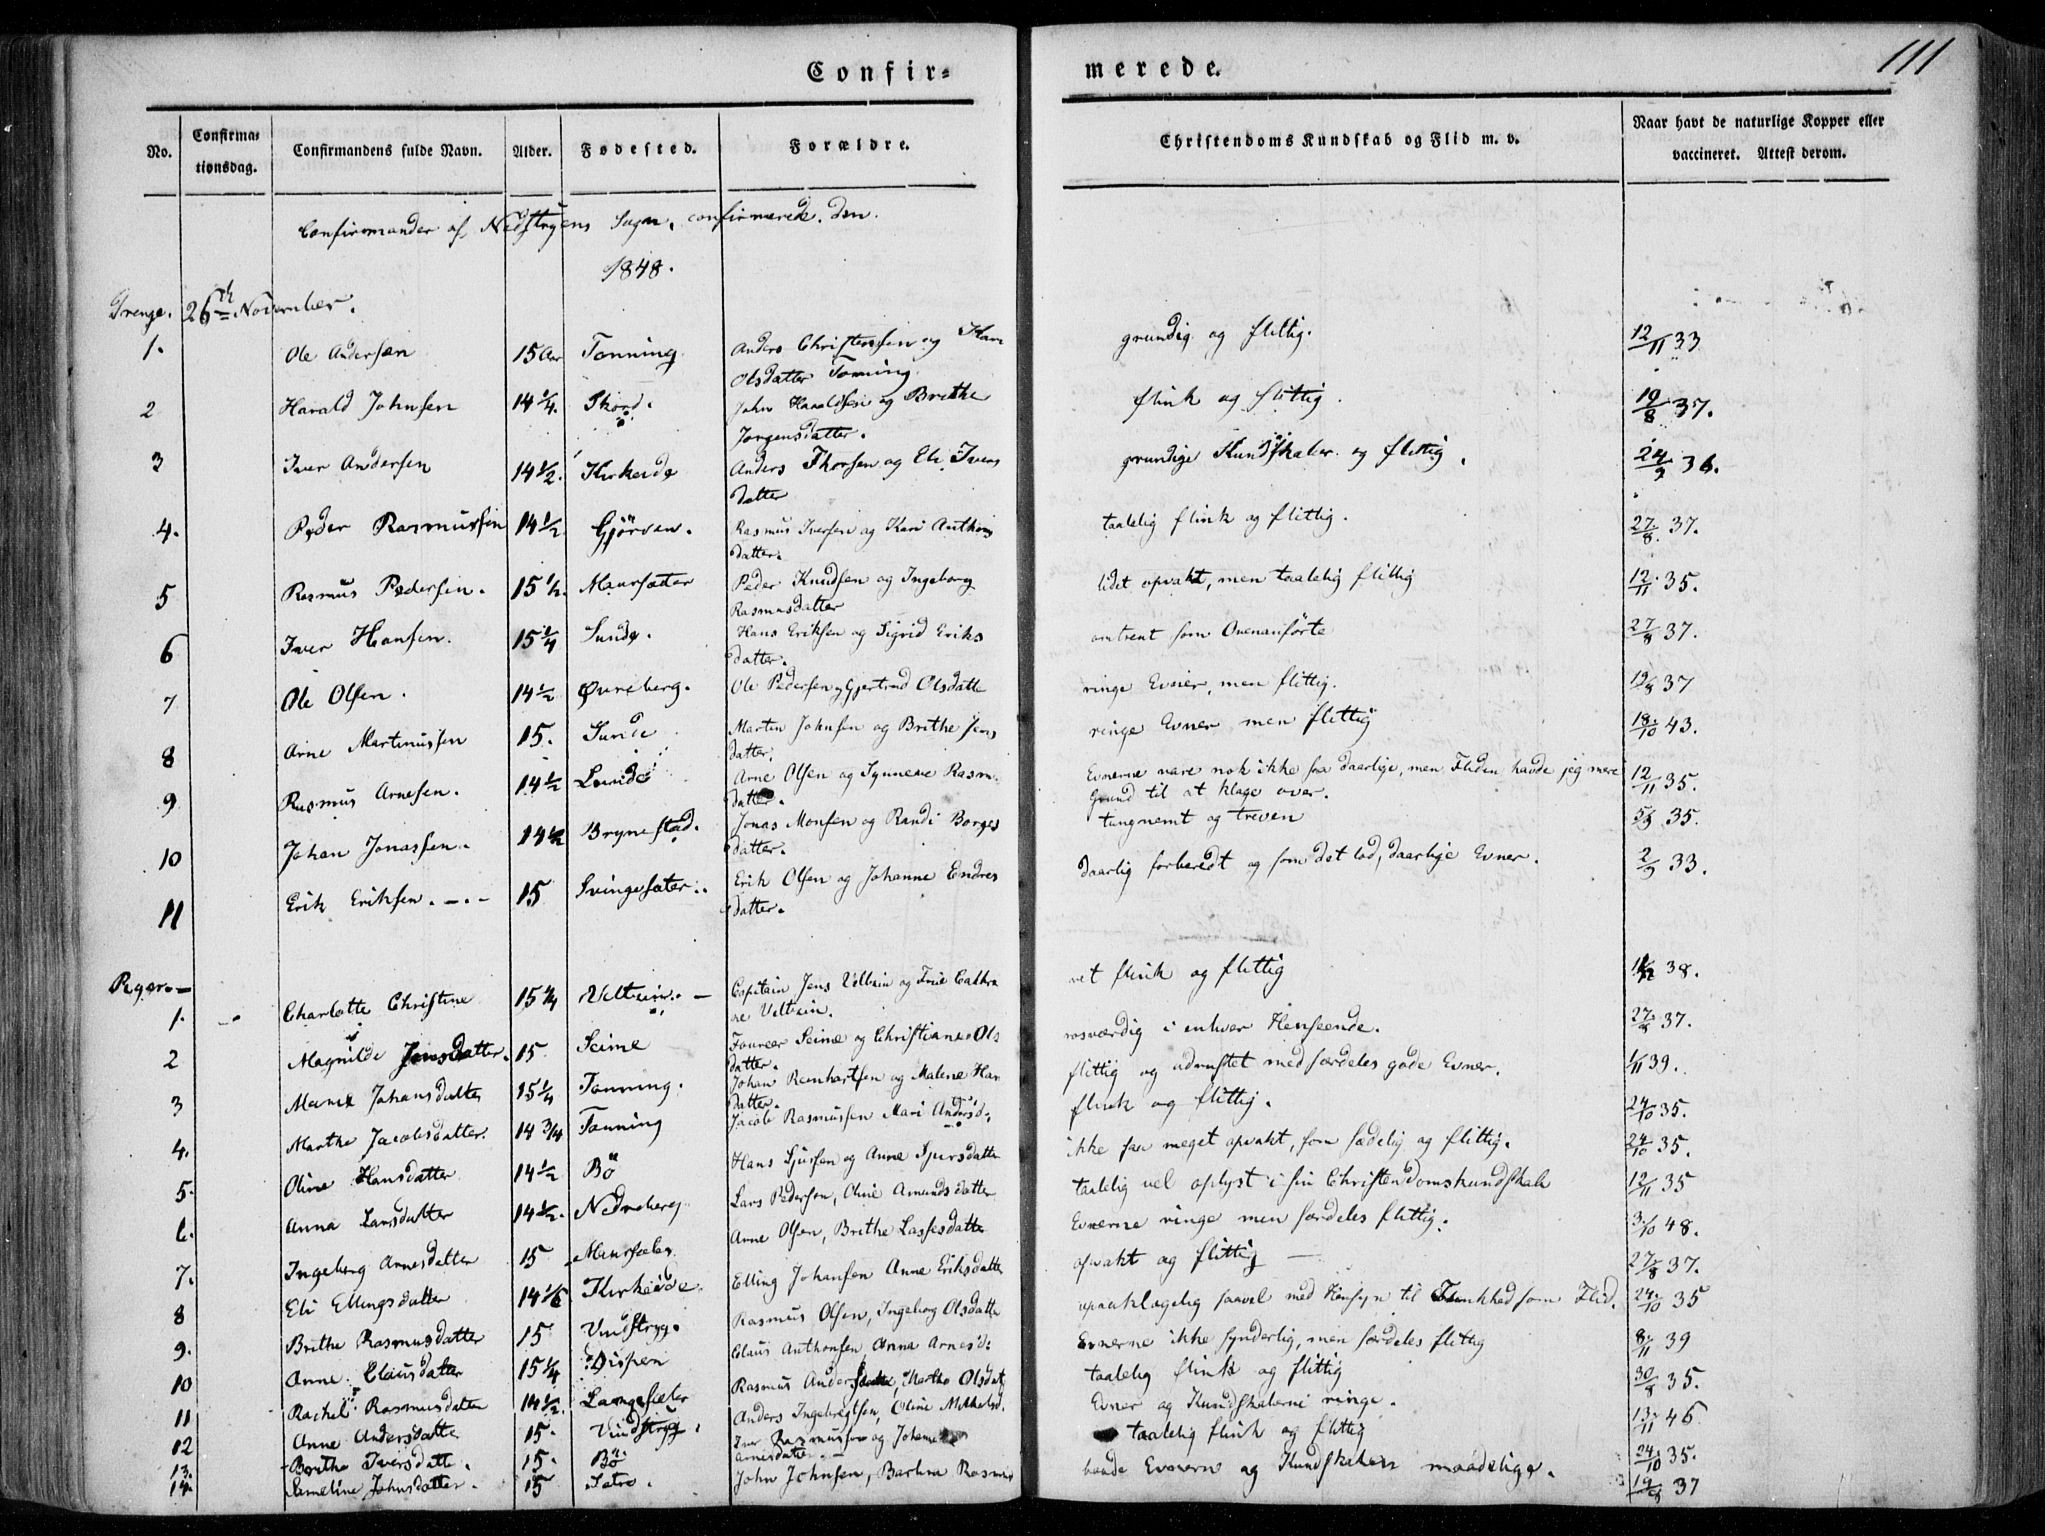 111
Confirmerede.
No. Confirmationsdag. Confirmandens fulde Navn. Alder. Fødested. Forældre. Christendoms Kundskab og Flid m. v. Naar havt de naturlige Kopper eller vaccineret. Attest derom.
Confirmander af Nedstryens Sogn, confirmerede den
1848.
Drenge. 26th November.
1. Ole Andersen 15 Aar Tonning Anders Christensen og Kari Olsdatter Tonning grundig og flittig. 12/11 33
2 Harald Johnsen 14 1/4. Skord. John Haraldsen og Brithe Jørgensdatter. flink og flittig. 19/8 37.
3 Iver Andersen 14 1/2. Kirkeide Anders Thorsen og Eli Ivers datter grundige Kundskaber og flittig. 24/9 36.
4. Peder Rasmussen 14 1/2. Gjörven. Rasmus Iversen og Kari Anthons datter. taalelig flink og flittig. 27/8. 37.
5 Rasmus Pedersen. 15 1/2. Maursæter Peder Knudsen og Ingeborg Rasmusdatter lidet opvakt, men taalelig flittig 12/11 35.
6 Iver Hansen. 15 1/4 Sunde. Hans Eriksen og Sigrid Eriks datter. omtrent som Ovenanförte 27/8 37.
7 Ole Olsen. 14 1/2 Øvreberg. Ole Pedersen og Gjertrud Olsdatte ringe Evner, men flittig. 19/8 37
8 Arne Martinussen 15. Sunde Martin Johnsen og Brithe Jens datter. ringe Evner men flittig 18/10 43.
9 Rasmus Arnesen. 14 1/2 Sunde Arne Olsen og Synneve Rasm. datter. Evnerne vare nok ikke saa daarlige, men Fliden havde jeg mere Grund til at klage over. 12/11 35.
10 Johan Jonassen. 14 1/2 Brynestad. Jonas Monsen og Randi Borges datter. tungnemt og treven 5/9 35.
11 Erik Eriksen. 15 Svingesæter. Erik Olsen og Johanne Endres datter. daarlig forberedt og som det lod, daarlige Evner. 2/9 33.
Piger.
1. Charlotte Christine 15 1/4 Veltvin. Capitain Jens Veltvin og Frue Cathrine Veltvin. ret flink og flittig 38.
2 Magnilde Jensdatter. 15 Seime Foureer Seime og Christiane Ols datter. rosværdig i enhver Henseende. 27/8 37.
3 Johansdatter 15 1/4 Tonning. Johan Renhartsen og Malene Han datter. flittig og udrustet med særdeles gode Evner. 1/11 39.
4. Marthe Jacobsdatter. 14 3/4 Tonning Jacob Rasmussen Mari Andersd. flink og flittig. 24/10 35.
5. Oline Hansdatter 14 1/2 Bö Hans Sjursen og Anne Sjursdatte ikke saa meget opvakt, som sædelig og flittig. 24/10 35.
6. Anna Larsdatter 14 1/2. Nedreberg Lars Pedersen, Oline Amundsdatter taalelig vel oplyst i sin Christendomskundskab 12/11 35
7. Ingeborg Arnesdatter 15 Maursæter Arne Olsen, Brithe Lassesdatte Evnerne ringe men særdeles flittig. 3/10 48.
8 Eli Ellingsdatter 14 1/6 Kirkeide. Elling Johansen Anne Eriksdatte opvakt og flittig 27/8 37.
9. Brithe Rasmusdatter 15 Vindstryg. Rasmus Olsen, Ingeborg Olsdatte upaaklagelig saavel med Hensyn til Flinkhed som Flid. 24/10 35
10 Anne Clausdatter 15 1/4 Dispen Claus Anthonsen, Anna Arnesd. Evnerne ikke synderlig, men særdeles flittig 8/11 39
11 Rachel Rasmusdatter 14 1/2. Langesæter Rasmus Andersen, Marthe Olsdat taalelig flink og flittig 30/8 35.
12 Anne Andersdatte 15. Vindstryg. Anders Ingebregtsen, Oline Mikkelsd. Evner og Kundskaberne ringe. 13/11 46
13. Brithe Iversdatte. 15. Bö. Iver Rasmussen og Johanne Arnesdatte taalelig flink og flittig 24/10 35.
14. Sameline Johnsdatter. 15 Sætre. John Johnsen, Barbra Rasmus baade Evnern og Kundskaben maadelige. 19/8 37